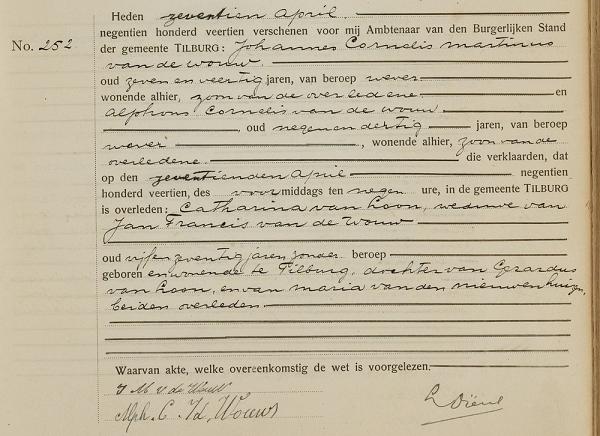 Heden zeventien April.
negentien honderd veertien verschenen voor mij Ambtenaar van den Burgerlijken Stand
No. 252
der gemeente TILBURG: Johannes Cornelis martinus
van de wouw
oud zeven en veertig jaren, van beroep wever
wonende alhier, zoon van de overledene en
Alphons Cornelis van de wouw
, oud negen en dertig jaren, van beroep
wever , wonende alhier, zoon van de
overledene. die verklaarden, dat
op den zeventienden April negentien
honderd veertien, des voormiddags ten negen ure, in de gemeente TILBURG
is overleden: Catharina van Loon, weduwe van
Jan Francis van de Wouw
oud vijf en zeventig jaren zonder beroep
geboren en wonende te Tilburg, dochter van Gerardus
van Loon, en van maria van den nieuwenhuizen,
beiden overleden.
Waarvan akte, welke overeenkomstig de wet is voorgelezen.
J M v d Wouw
Alph. C. v d. Wouw